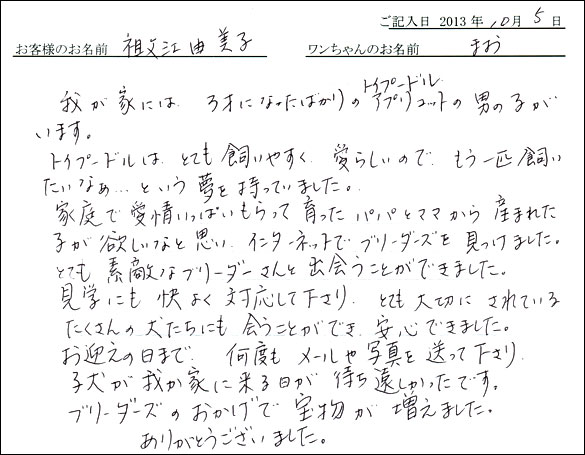 ご記入日 2013 年 10 月 5 日
お客様のお名前 祖父江 由美子 ワンちゃんのお名前 まお
トイプードル
我が家には 3才になったばかりの アプリコットの男の子が
います。
トイプードルは、とても飼いやすく、愛らしいので、もう一匹飼い
たいなぁ…という夢を持っていました。
家庭で愛情いっぱいもらって育ったパパとママから産まれた
子が欲しいなと思い、インターネットでブリーダーズを見つけました。
とても素敵なブリーダーさんと出会うことができました。
見学にも快よく対応して下さり、とても大切にされている
たくさんの犬たちにも会うことができ、安心できました。
お迎えの日まで、何度もメールや写真を送って下さり、
子犬が我が家に来る日が待ち遠しかったです。
ブリーダーズのおかげで宝物が増えました。
ありがとうございました。